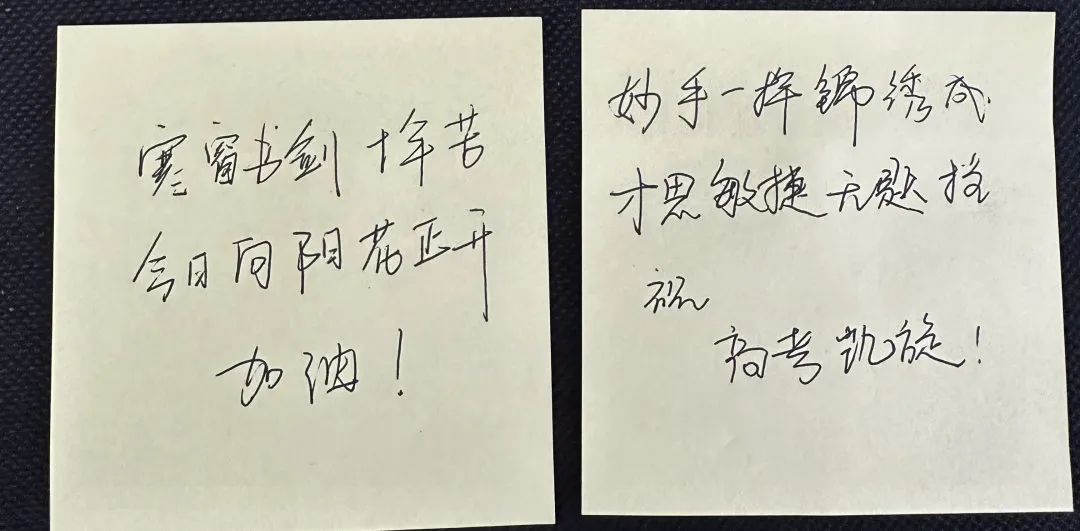 寒窗书剑十年苦
今日向阳花正开
加油！
妙手一挥锦绣成
才思敏捷无题挡
祝
高考凯旋！